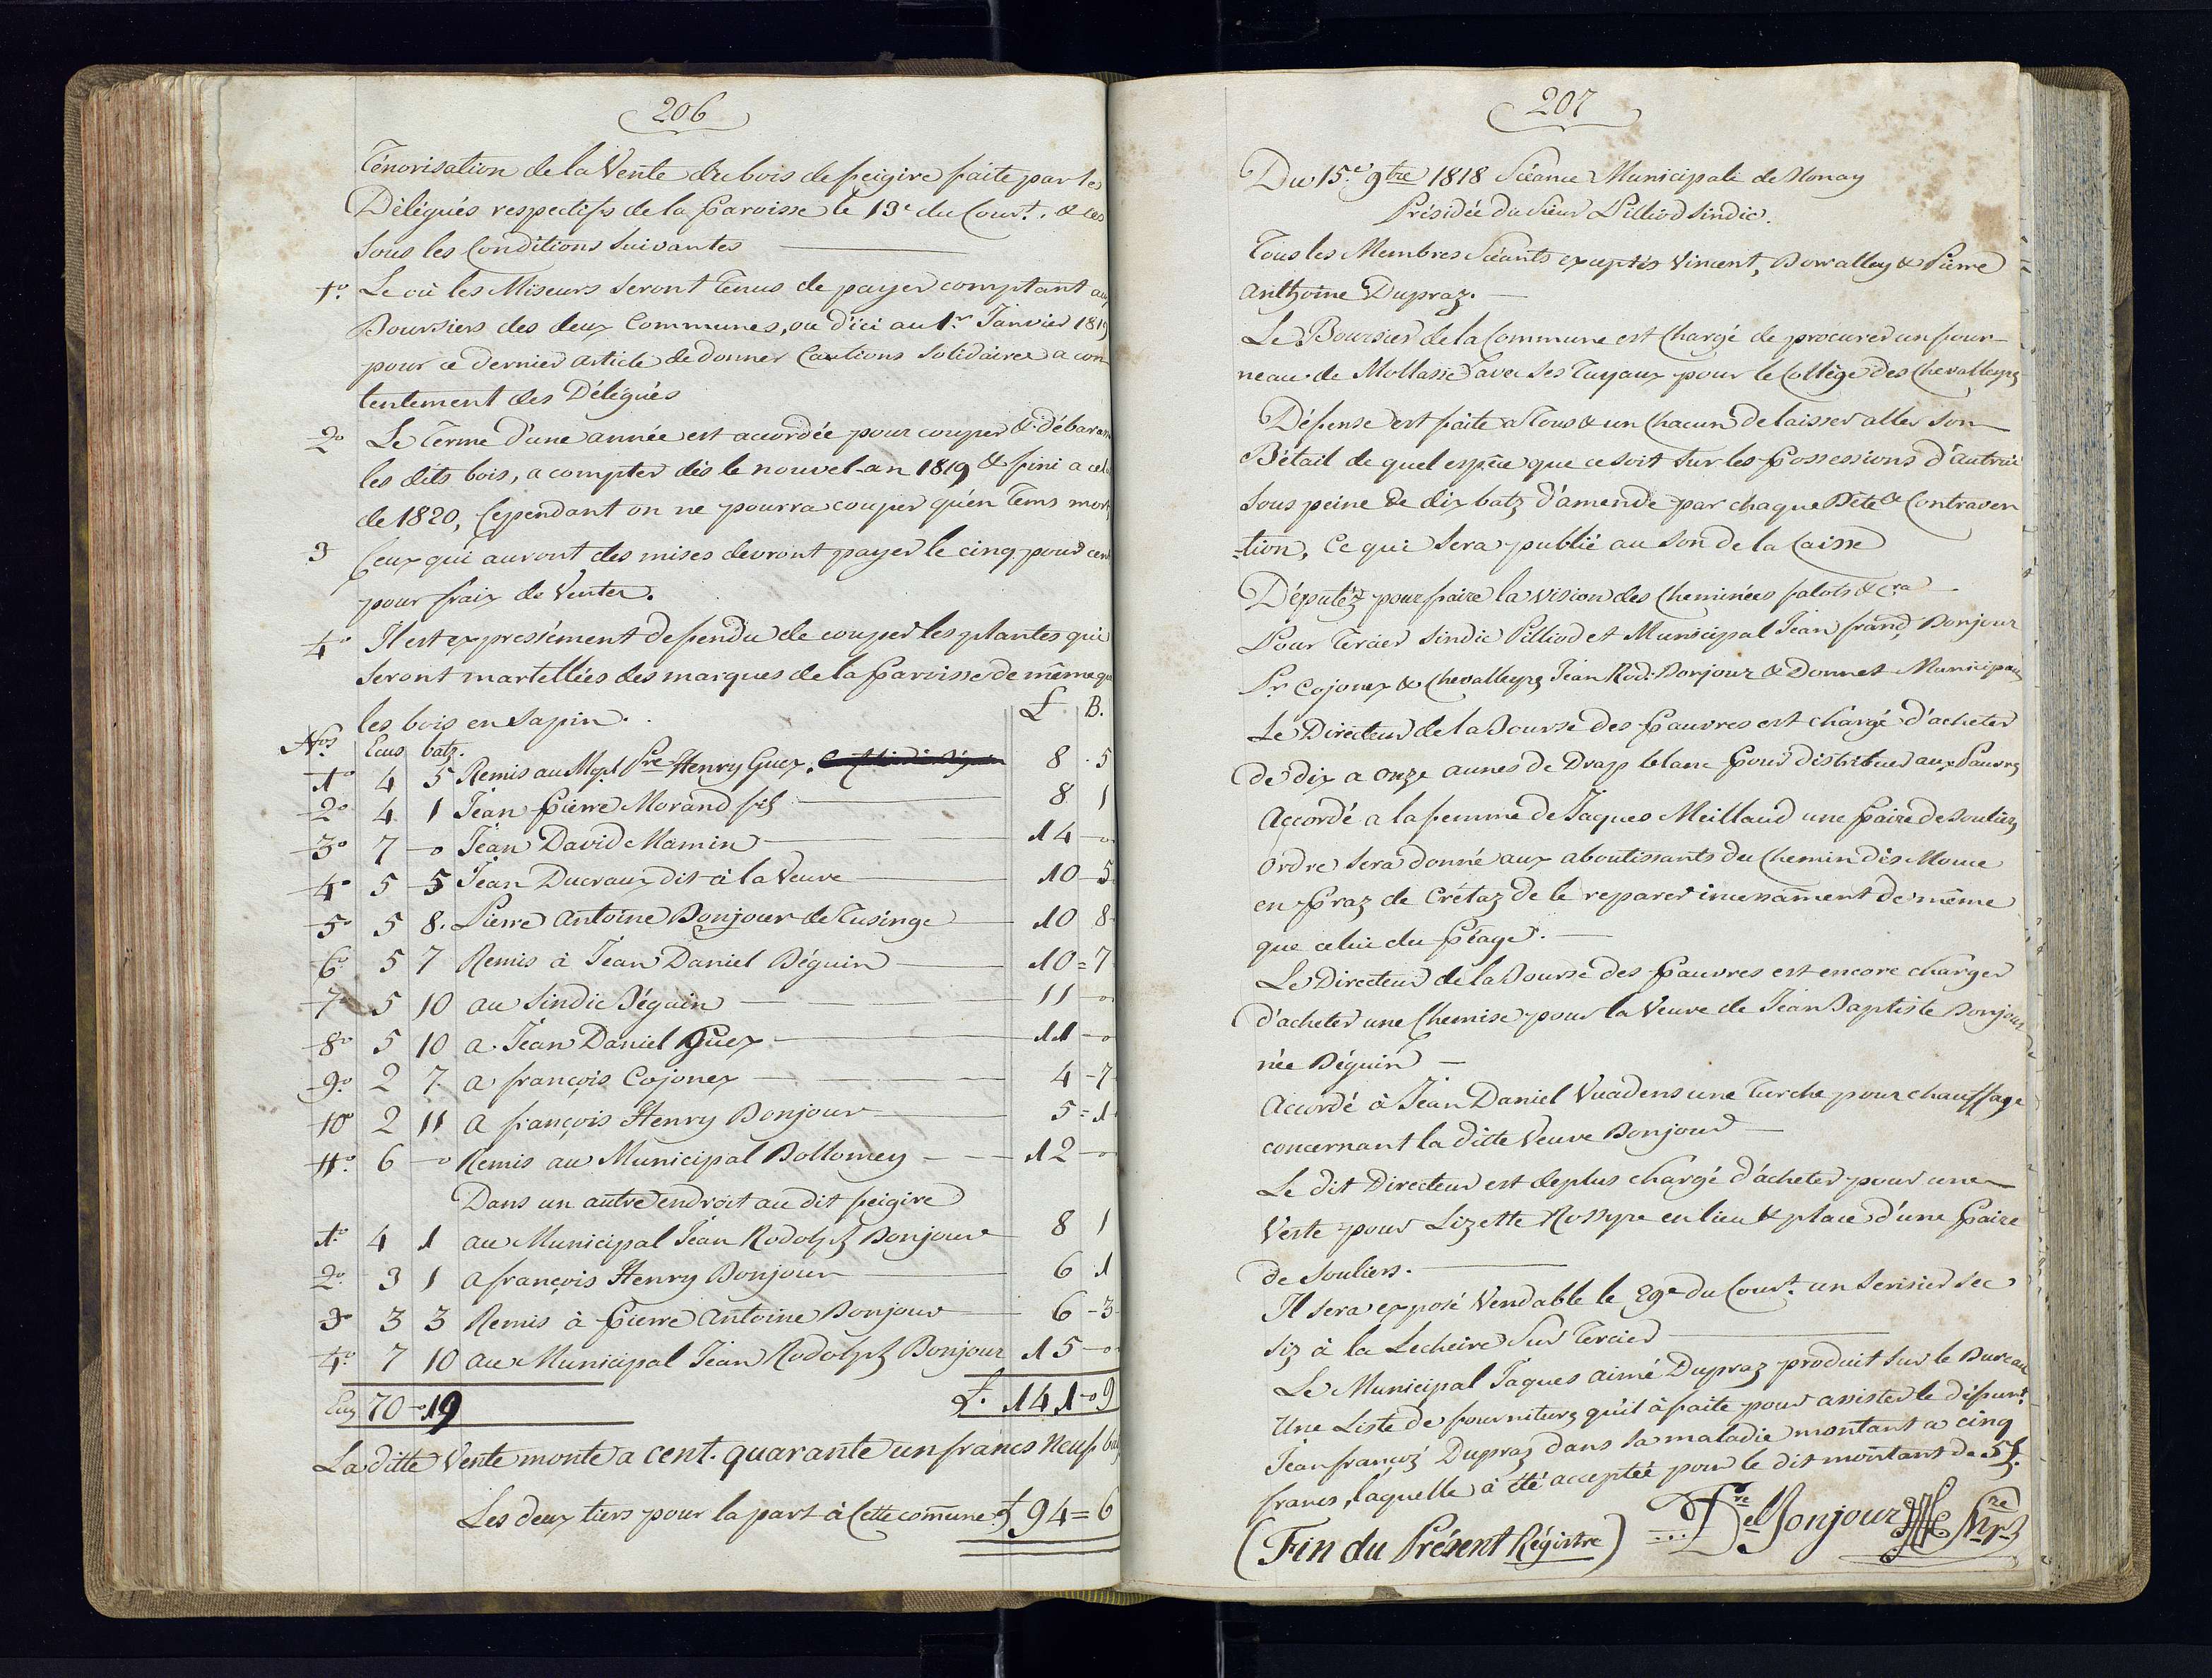 206
Ténorisation de la Vente du bois de feigire faite par les
Délégués respectifs de la Paroisse le 13e du Court. & ces
sous les Conditions Suivantes
1o. Le où les Miseurs seront tenus de payer comptant aux
Boursiers des deux Communes, ou d'ici au 1er Janvier 1819
pour ce dernier article de donner Cautions Solidaires a con
tentement des Délégués
2o Le Terme d'une année est accordée pour couper & débarass
les dits bois, a compter dès le nouvel-an 1819 & fini a celui
de 1820, Cependant on ne pourra couper qu'en Tems mort
3 Ceux qui auront des mises devront payer le cinq pour cent
pour fraix de Ventes.
4o Il est expressément defendu de couper les plantes qui
seront martellées des marques de la Paroisse de même que
les bois en Sapin.
Nos Ecus batz. £ B.
1o 4 5 Remis au Mpl Pre Henry Guex 8 . 5
2o 4 1 Jean Pierre Morand fils 8 1
3o 7 - o Jean David Mamin 14 - o
4o 5 5 Jean Ducraux dit à la Veuve 10 - 5
5o 5 8. Pierre Antoine Bonjour de Tusinge 10 8
6o 5 7 Remis à Jean Daniel Béguin 10 = 7
7o 5 10 au Sindic Béguin 11 - o
8o 5 10 a Jean Daniel Guex 11 - o
9o 2 7. a françois Cojonex 4 - 7
10o 2 11 a françois Henry Bonjour 5 = 1
11o. 6 - o Remis au Municipal Bollomey 12 - o
Dans un autre endroit au dit feigire
1o 4 1 au Municipal Jean Rodolph Bonjour 8 1
2o. 3 1 a françois Henry Bonjour 6 . 1
3o 3 3 Remis à Pierre Antoine Bonjour 6 - 3
4o. 7 10 au Municipal Jean Rodolph Bonjour 15 - o
Ecus 70 - 19 £. 141 - 9
La ditte Vente monte a cent. quarante un francs Neuf batz
Les deux tiers pour la part à Cette commune £ 94 = 6
207
Du 15.e 9bre 1818 Séance Municipale de Blonay
Présidée du Sieur Pilliod Sindic.
Tous les Membres Séants exceptés Vincent, Bovalley & Pierre
Anthoine Dupraz. —
Le Boursier de la Commune est Chargé de procurer un four-
neau de Mollasse avec ses Tuyaux pour le Collège des Chevalleyres
Défense est faite a Tous & un Chacun de laisser aller son
Bétail de quel espèce que ce soit sur les Possessions d'autrui
sous peine de dix batz d'amende par chaque Bête & Contraven
-tion, Ce qui sera publié au Son de la Caisse
Députéz pour faire la vision des Cheminées falots & cra
Pour Tercier Sindic Pilliod et Municipal Jean frand Bonjour
Pr Cojonex & Chevalleyres Jean Rod. Bonjour & Donnet Municipaux
Le Directeur de la Bourse des Pauvres est chargé d'acheter
de dix a onze aunes de Drap blanc Pour distribuer aux Pauvres
Accordé a la femme de Jaques Meillaud une Paire de souliers
Ordre sera donné aux aboutissants du Chemin dès Mouce
en Praz de Crétaz de le reparer incessamment de même
que celui du Péage. —
Le Directeur de la Bourse des Pauvres est encore charger
d'acheter une Chemise pour la Veuve de Jean Baptiste Bonjour
née Béguin —
Accordé à Jean Daniel Vuadens une Turche pour chauffage
concernant la ditte Veuve Bonjour —
Le dit Directeur est deplus chargé d'acheter pour une
Veste pour Lizette Rossyre en lieu & place d'une Paire
de Souliers. —
Il sera exposé Vendable le 29e du Court. un Serisier sec
siz à la Lecheire sur Tercier —
Le Municipal Jaques aimé Dupraz produit sur le Bureau
Une Liste de fournitures qu'il à faite pour assister le défunt
Jean françoz Dupraz dans sa maladie montant a cinq
francs, laquelle à été acceptée pour le dit montant de 5 f.
(Fin du Présent Régistre) Del Bonjour